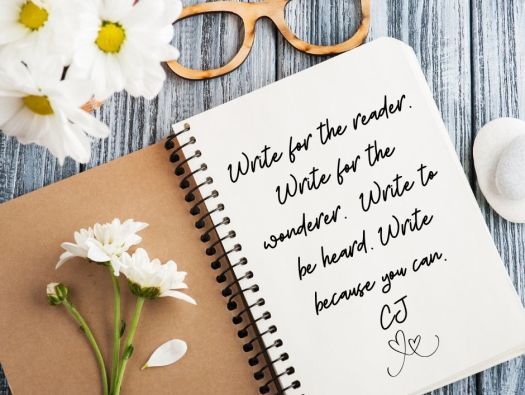 Write for the reader.
Write for the
wonderer. Write to
be heard. Write
because you can.
CJ